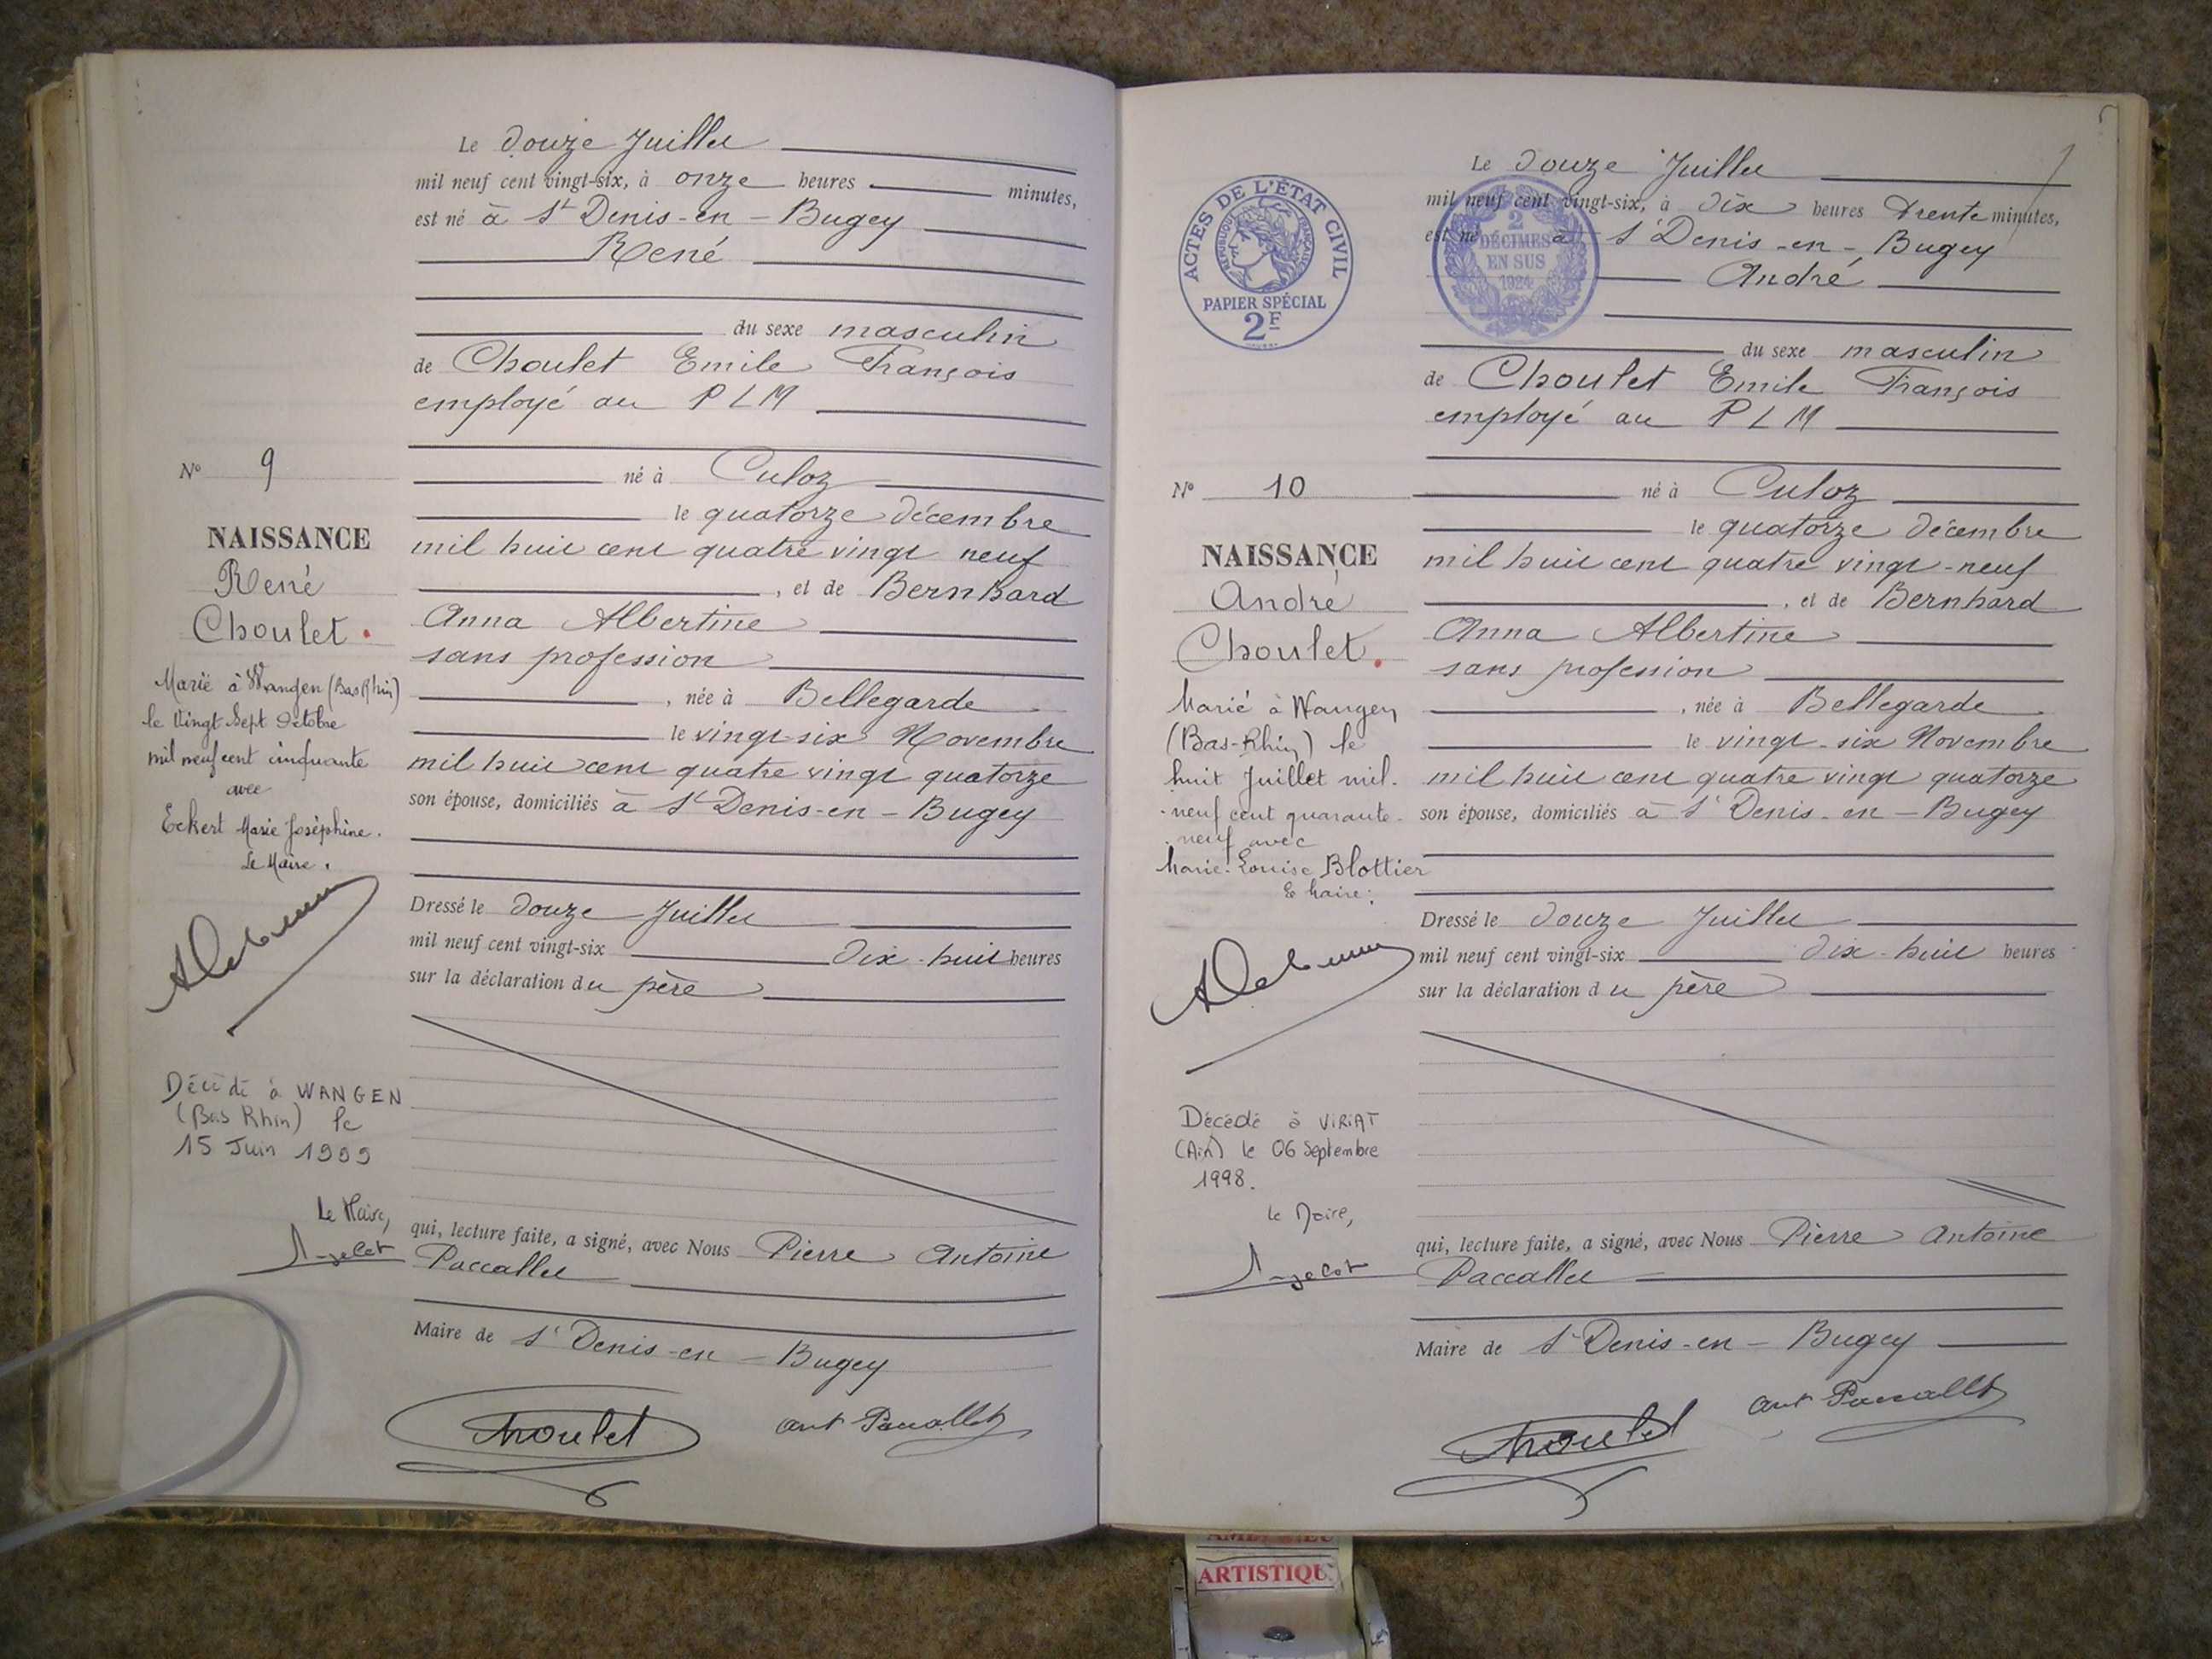 Le douze Juillet
mil neuf cent vingt-six, à onze heures minutes,
est né à St Denis-en-Bugey
René
du sexe masculin
de Choulet Emile François
employé au PLM
né à Culoz
le quatorze décembre
mil huit cent quatre vingt neuf
, et de Bernhard
Anna Albertine
sans profession
, née à Bellegarde
le vingt-six Novembre
mil huit cent quatre vingt quatorze
son épouse, domiciliés à St Denis-en-Bugey
Dressé le douze Juillet
mil neuf cent vingt-six dix-huit heures
sur la déclaration du père
qui, lecture faite, a signé, avec Nous Pierre Antoine
Paccallet
Maire de St Denis-en-Bugey
Choulet ant Paccallet
No 9
NAISSANCE
René
Choulet
Marié à Wangen (Bas Rhin)
le Vingt Sept Octobre
mil neuf cent cinquante
avec
Eckert Marie Joséphine.
Le Maire.
Décédé à WANGEN
(Bas Rhin) le
15 Juin 1999
Le Maire,
ACTES DE L'ÉTAT CIVIL
RÉPUBLIQUE FRANÇAISE
PAPIER SPÉCIAL
2F
2
DÉCIMES
EN SUS
1924
Le douze Juillet
mil neuf cent vingt-six, à dix heures trente minutes,
est né à St Denis-en-Bugey
André
du sexe masculin
de Choulet Emile François
employé au PLM
né à Culoz
le quatorze décembre
mil huit cent quatre vingt-neuf
, et de Bernhard
Anna Albertine
sans profession
, née à Bellegarde
le vingt-six Novembre
mil huit cent quatre vingt quatorze
son épouse, domiciliés à St Denis-en-Bugey
Dressé le douze Juillet
mil neuf cent vingt-six dix-huit heures
sur la déclaration du père
qui, lecture faite, a signé, avec Nous Pierre Antoine
Paccallet
Maire de St Denis-en-Bugey
Choulet ant Paccallet
No 10
NAISSANCE
André
Choulet
Marié à Wangen
(Bas-Rhin) le
huit Juillet mil
neuf cent quarante-
neuf avec
Marie-Louise Blottier
Le Maire:
Décédé à VIRIAT
(Ain) le 06 Septembre
1998.
Le Maire,
ARTISTIQU